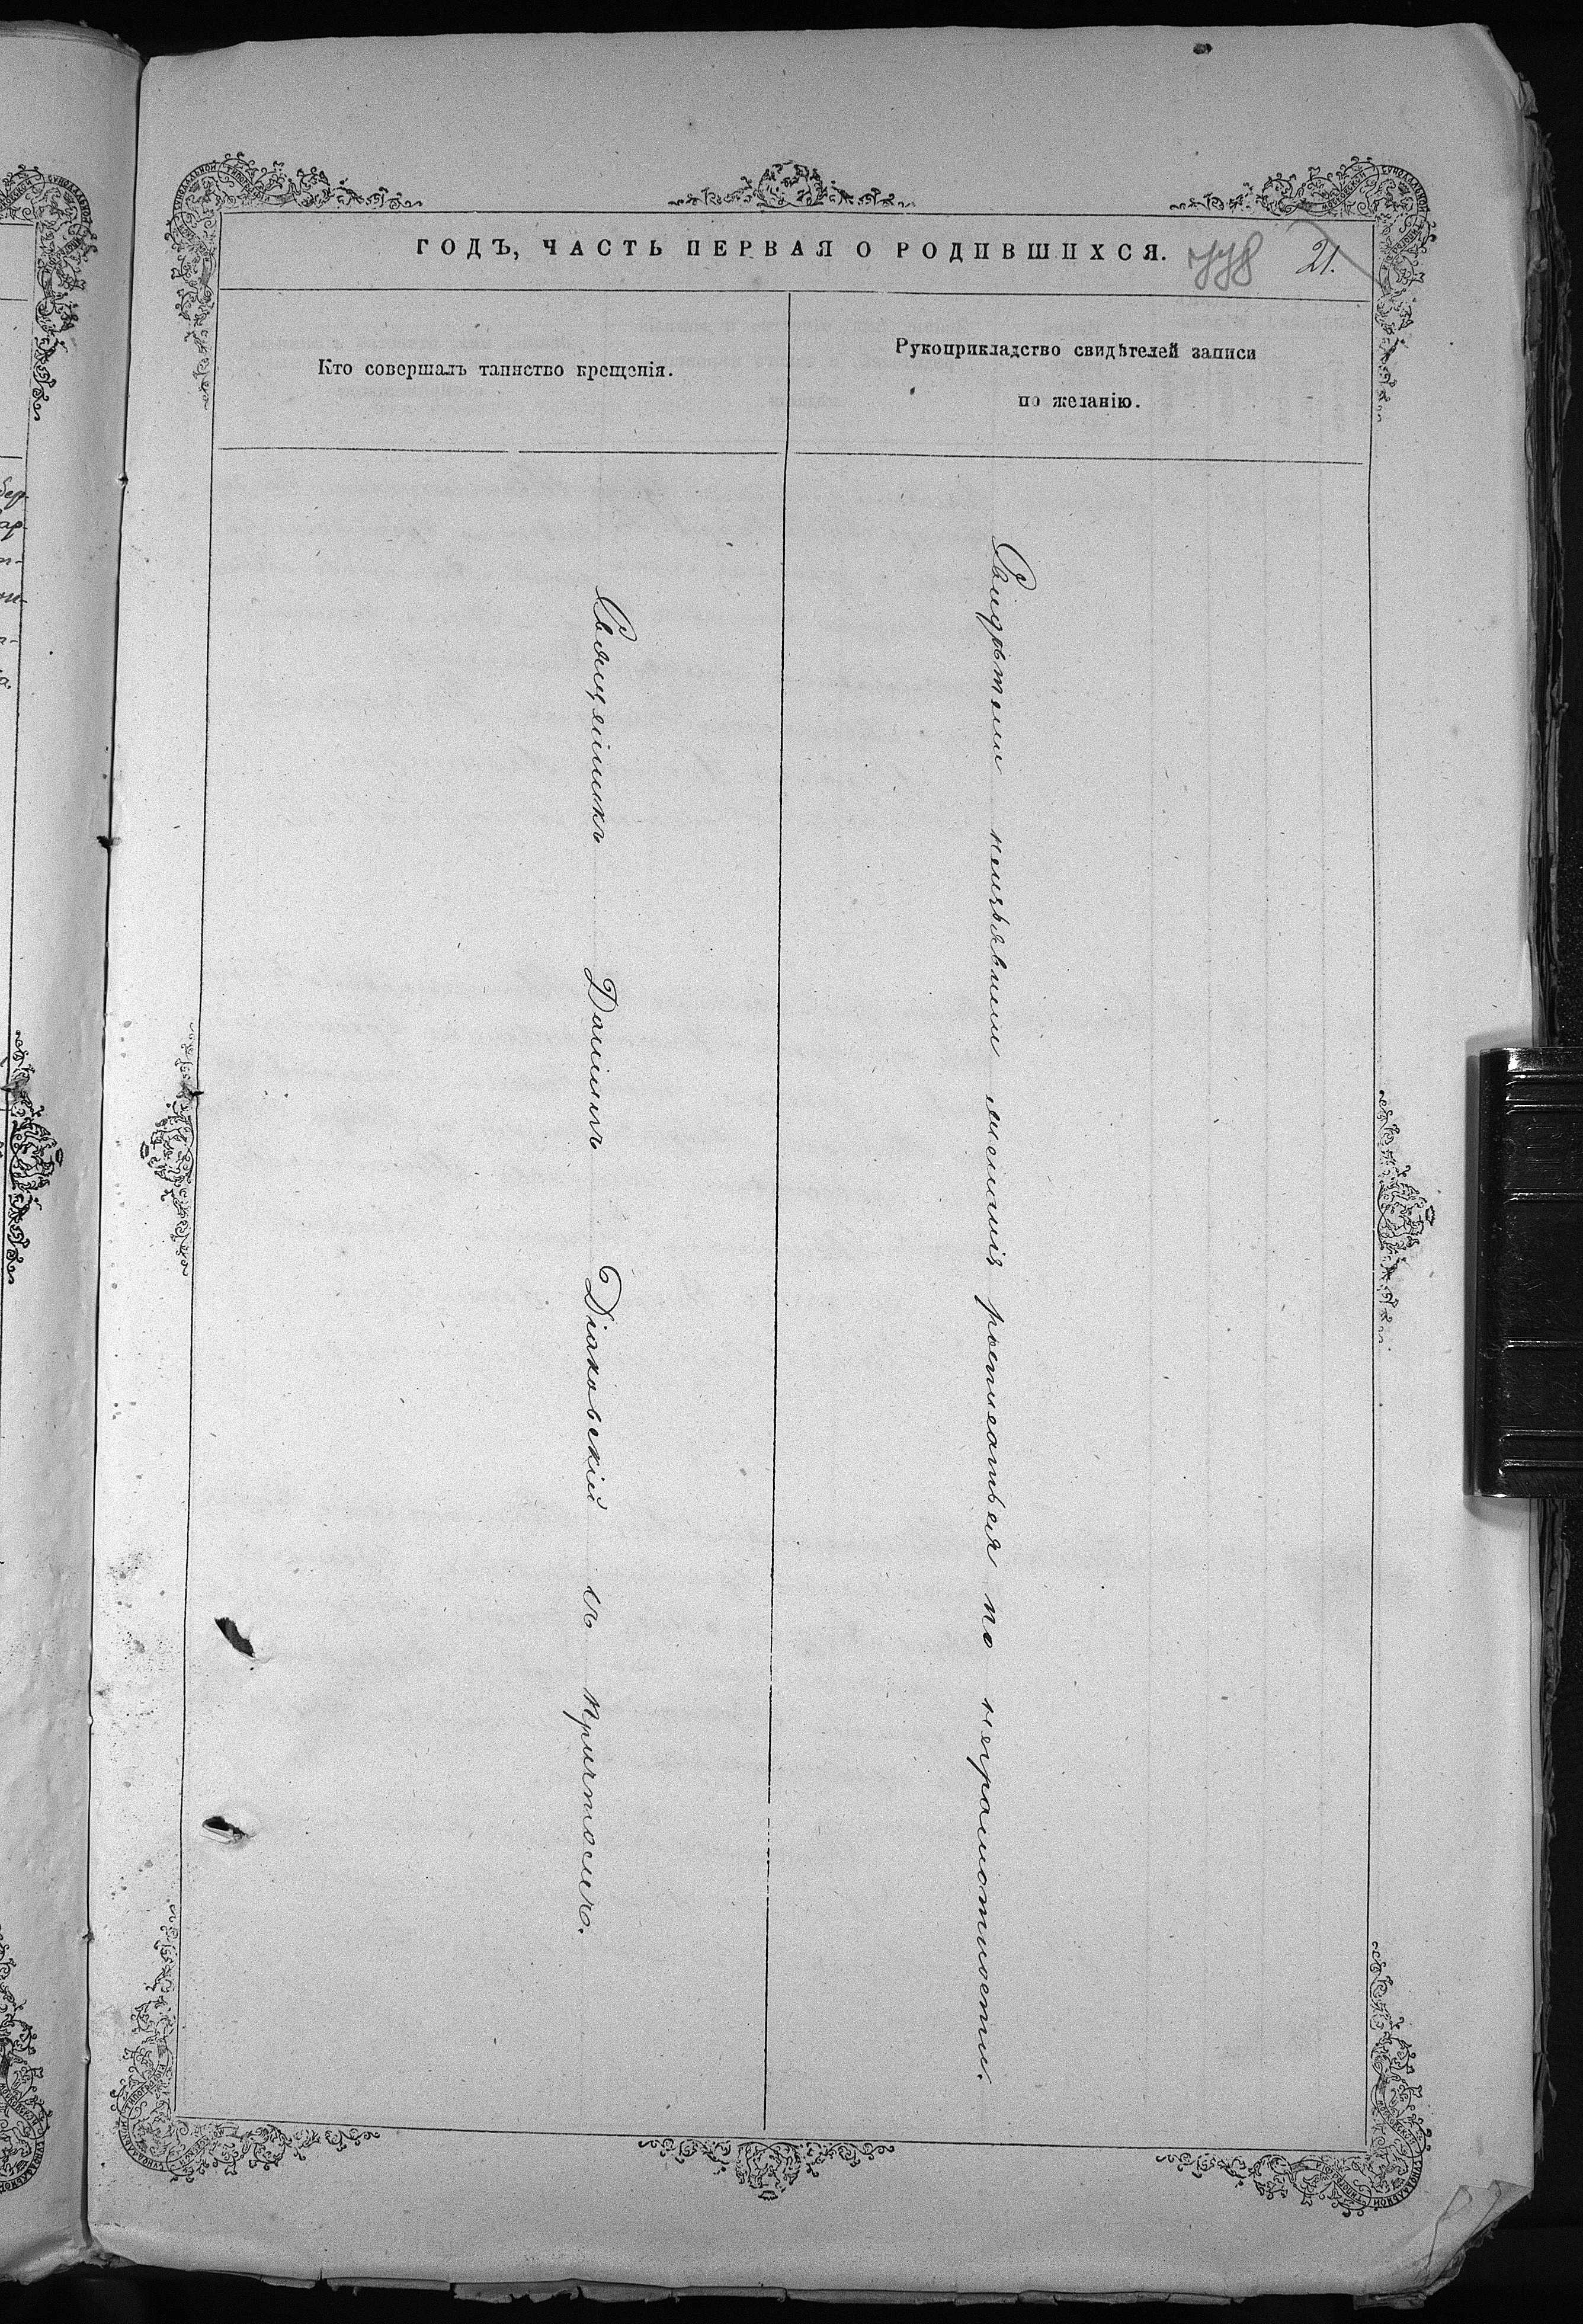 ГОДЪ, ЧАСТЬ ПЕРВАЯ О РОДИВШИХСЯ.
778
21.
Кто совершалъ таинство крещенія.
Рукоприкладство свидѣтелей записи
по желанію.
Священникъ Даніилъ Діаковскій съ причтомъ.
Свидѣтели неизъявили желанія росписаться по неграмотности.